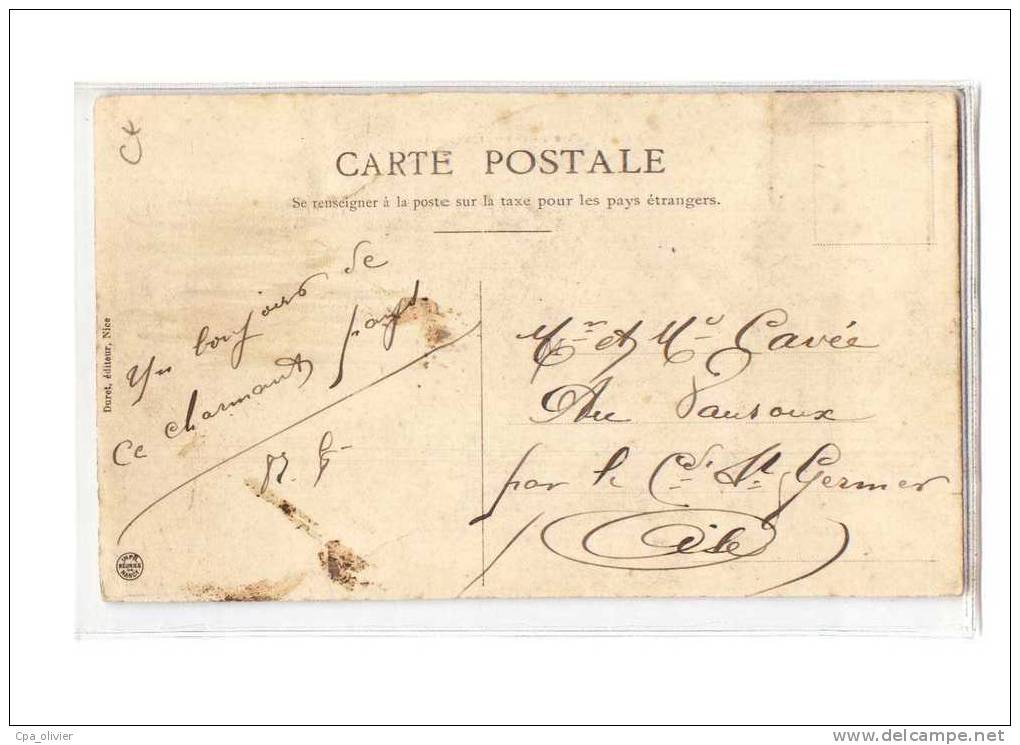 CARTE POSTALE
Se renseigner à la poste sur la taxe pour les pays étrangers.
Un bonjour de
ce charmant pays.
Mr et Me Cavée
Au
par le St Germer
Oise
Duret, éditeur, Nice
IMPRIES
RÉUNIES
DE
NANCY
Cpa_olivier
www.delcampe.net